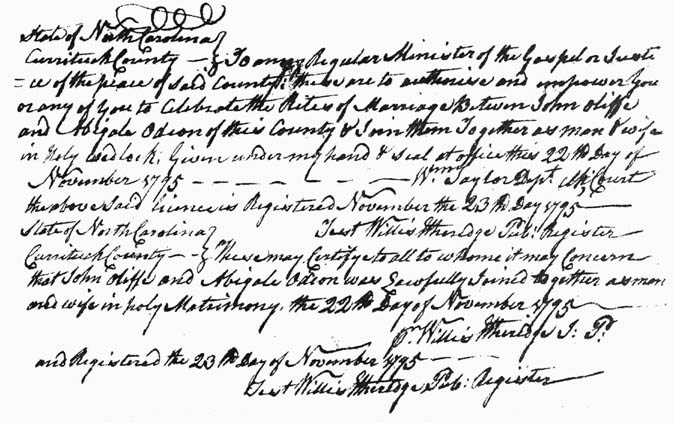 State of North Carolina }
Currituck County - } To any Regular Minister of the Gospel or Justi
=ce of the peace of said County: these are to authorise and impower you
or any of you to Celebrate the Rites of Marriage Betwen John Oliffe
and Abigale Odeon of this County & Join them Together as man & wife
in holy wedlock; Given under my hand & seal at office this 22th Day of
November 1795 - - - - - - - Wm Taylor Dept. Clk Court
the above said licence is Registered November the 23th Day 1795
State of North Carolina } Test Willis Etheredge Pub: Register
Currituck County - - } These may Certifye to all to whome it may Concern
that John Oliffe and Abigale Odeon was Lawfully Joined together as man
and wife in holy Matrimony, the 22th Day of November 1795
Pr. Willis Etheredge J: P.
and Registered the 23th Day of November 1795 - - -
Test Willis Etheredge Pub: Register